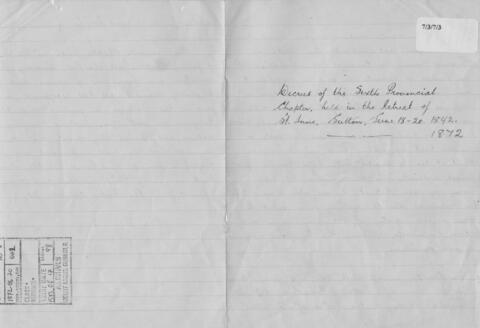 7/3/7/3
Decrees of the Sixth Provincial
Chapter, held in the Retreat of
St. Anne, Sutton, June 18-20 1842.
1872
1872-06-20
CLASS
ARCHIVES